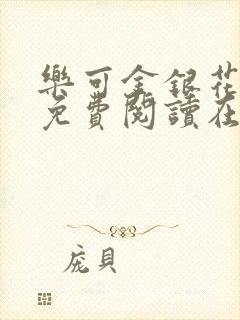 樂可金銀花
免費閱讀在
庞貝